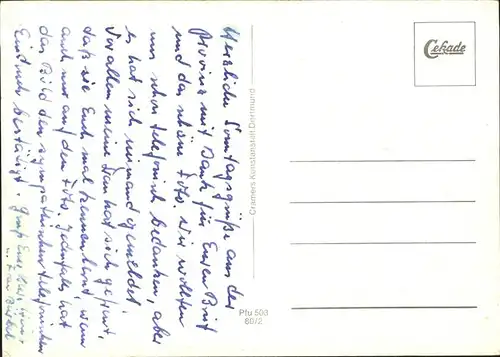 Herzliche Sonntagsgrüße aus der
Provinz mit Dank für Euren Brief
und das schöne Foto. Wir wollten
uns schon telefonisch bedanken, aber
es hat sich niemand gemeldet.
Vor allem meine Frau hat sich gefreut,
daß sie Euch mal kennenlernt, wenn
auch nur auf dem Foto. Jedenfalls hat
das Bild den sympathischen telefonischen
Eindruck bestätigt. Gruß Euer
u. Frau
Cekade
Cramers Kunstanstalt, Dortmund
Pfu 503
80/2